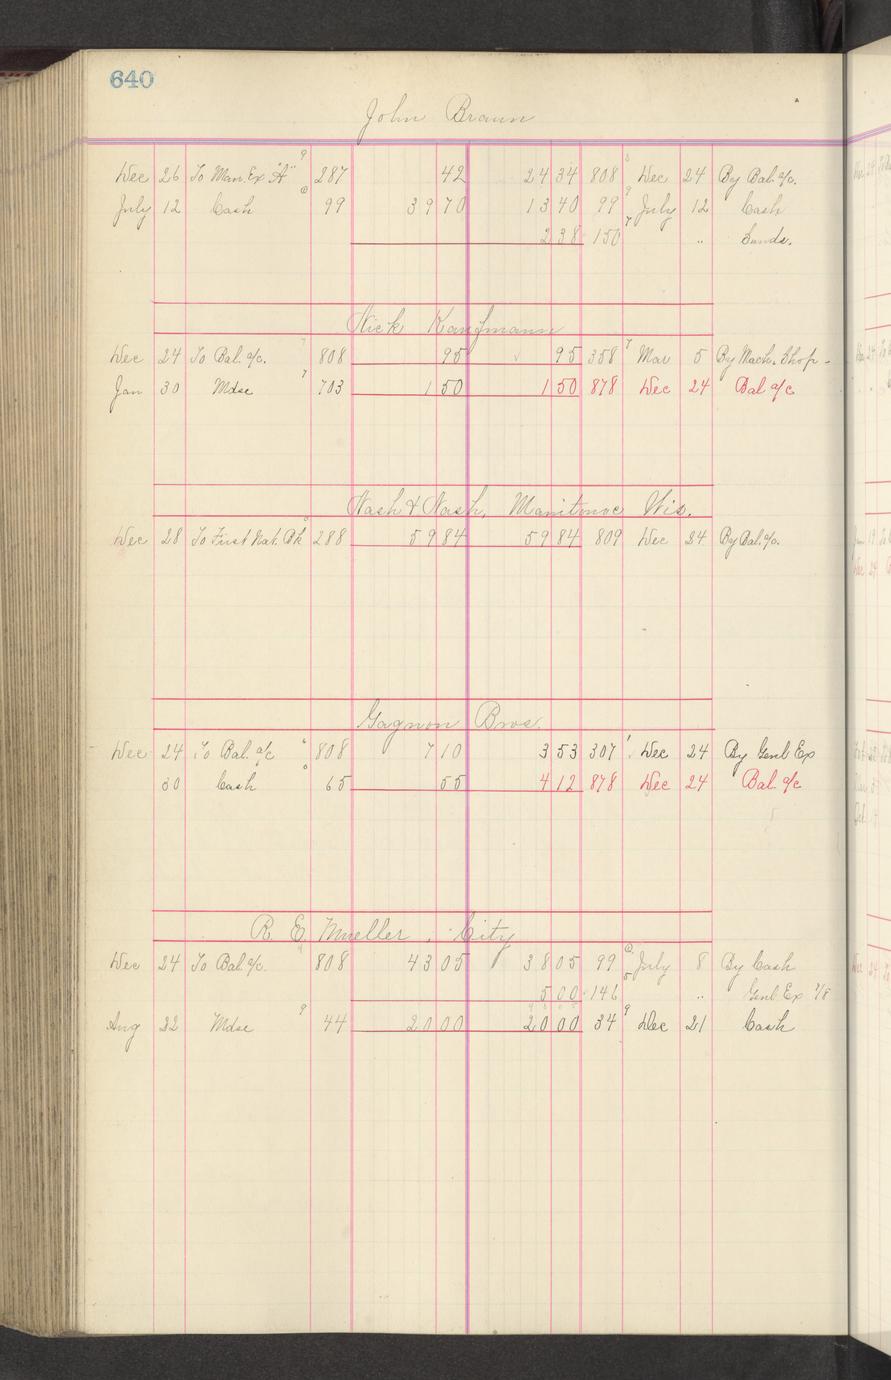 640
John Braun
Dec 26 To Man. Ex "A" 9 287 42 24 34 808 8 Dec 24 By Bal. a/c.
July 12 Cash 99 39 70 13 40 99 9 July 12 Cash
2 38 150 7 " Sunds.
Nick Kaufmann
Dec 24 To Bal. a/c. 7 808 95 √ 95 358 7 Mar 5 By Mach. Shop -
Jan 30 Mdse 7 703 1 50 1 50 878 Dec 24 Bal a/c
Nash & Nash, Manitowoc Wis.
Dec 28 To First Nat. Bk 288 59 84 59 84 809 Dec 24 By Bal. a/c.
Gagnon Bros.
Dec 24 To Bal. a/c 808 7 10 3 53 307 Dec 24 By Genl Ex
30 Cash 65 55 4 12 878 Dec 24 Bal. a/c
R. E. Mueller, City
Dec 24 To Bal a/c. 808 43 05 38 05 99 July 8 By Cash
5 00 146 " Genl Ex 7/8
Aug 22 Mdse 9 44 20 00 20 00 34 9 Dec 21 Cash